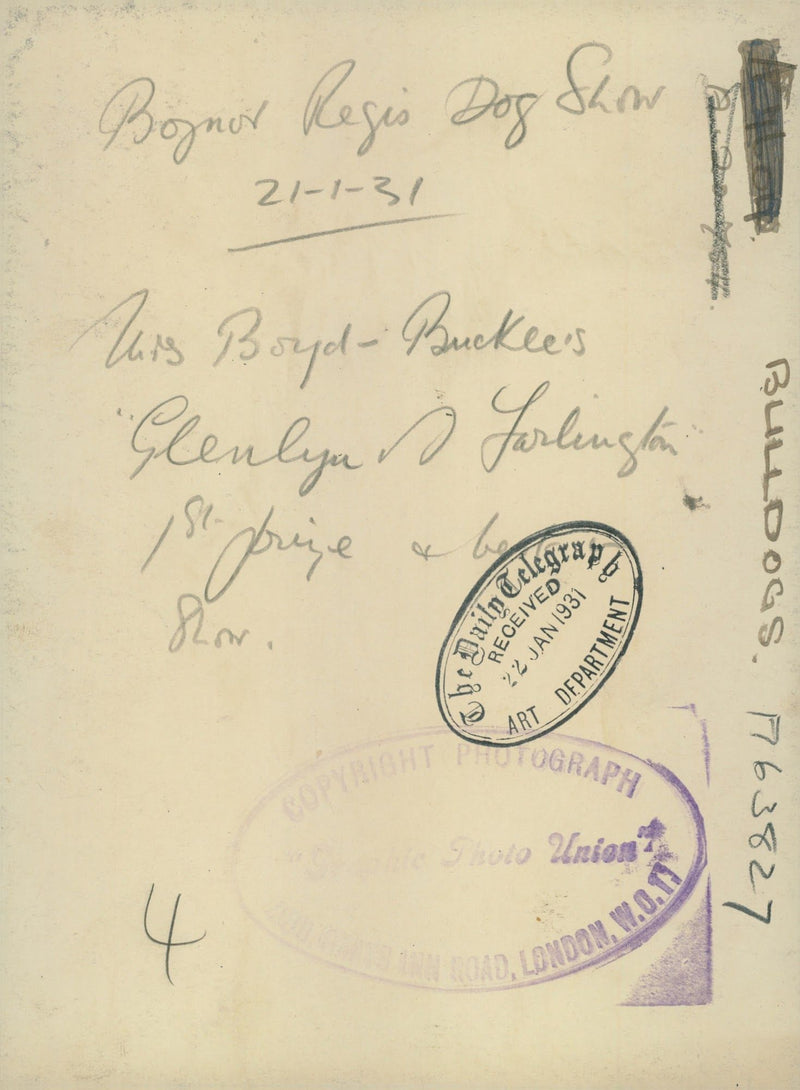 Bognor Regis Dog Show
21-1-31
Mrs Boyd-Bucklee's
"Glenlyn Farlington"
1st prize & best
Show.
The Daily Telegraph
RECEIVED
22 JAN 1931
ART DEPARTMENT
COPYRIGHT PHOTOGRAPH
Photo Union"
INN ROAD, LONDON, W.C.1
4
BULLDOGS. P763827